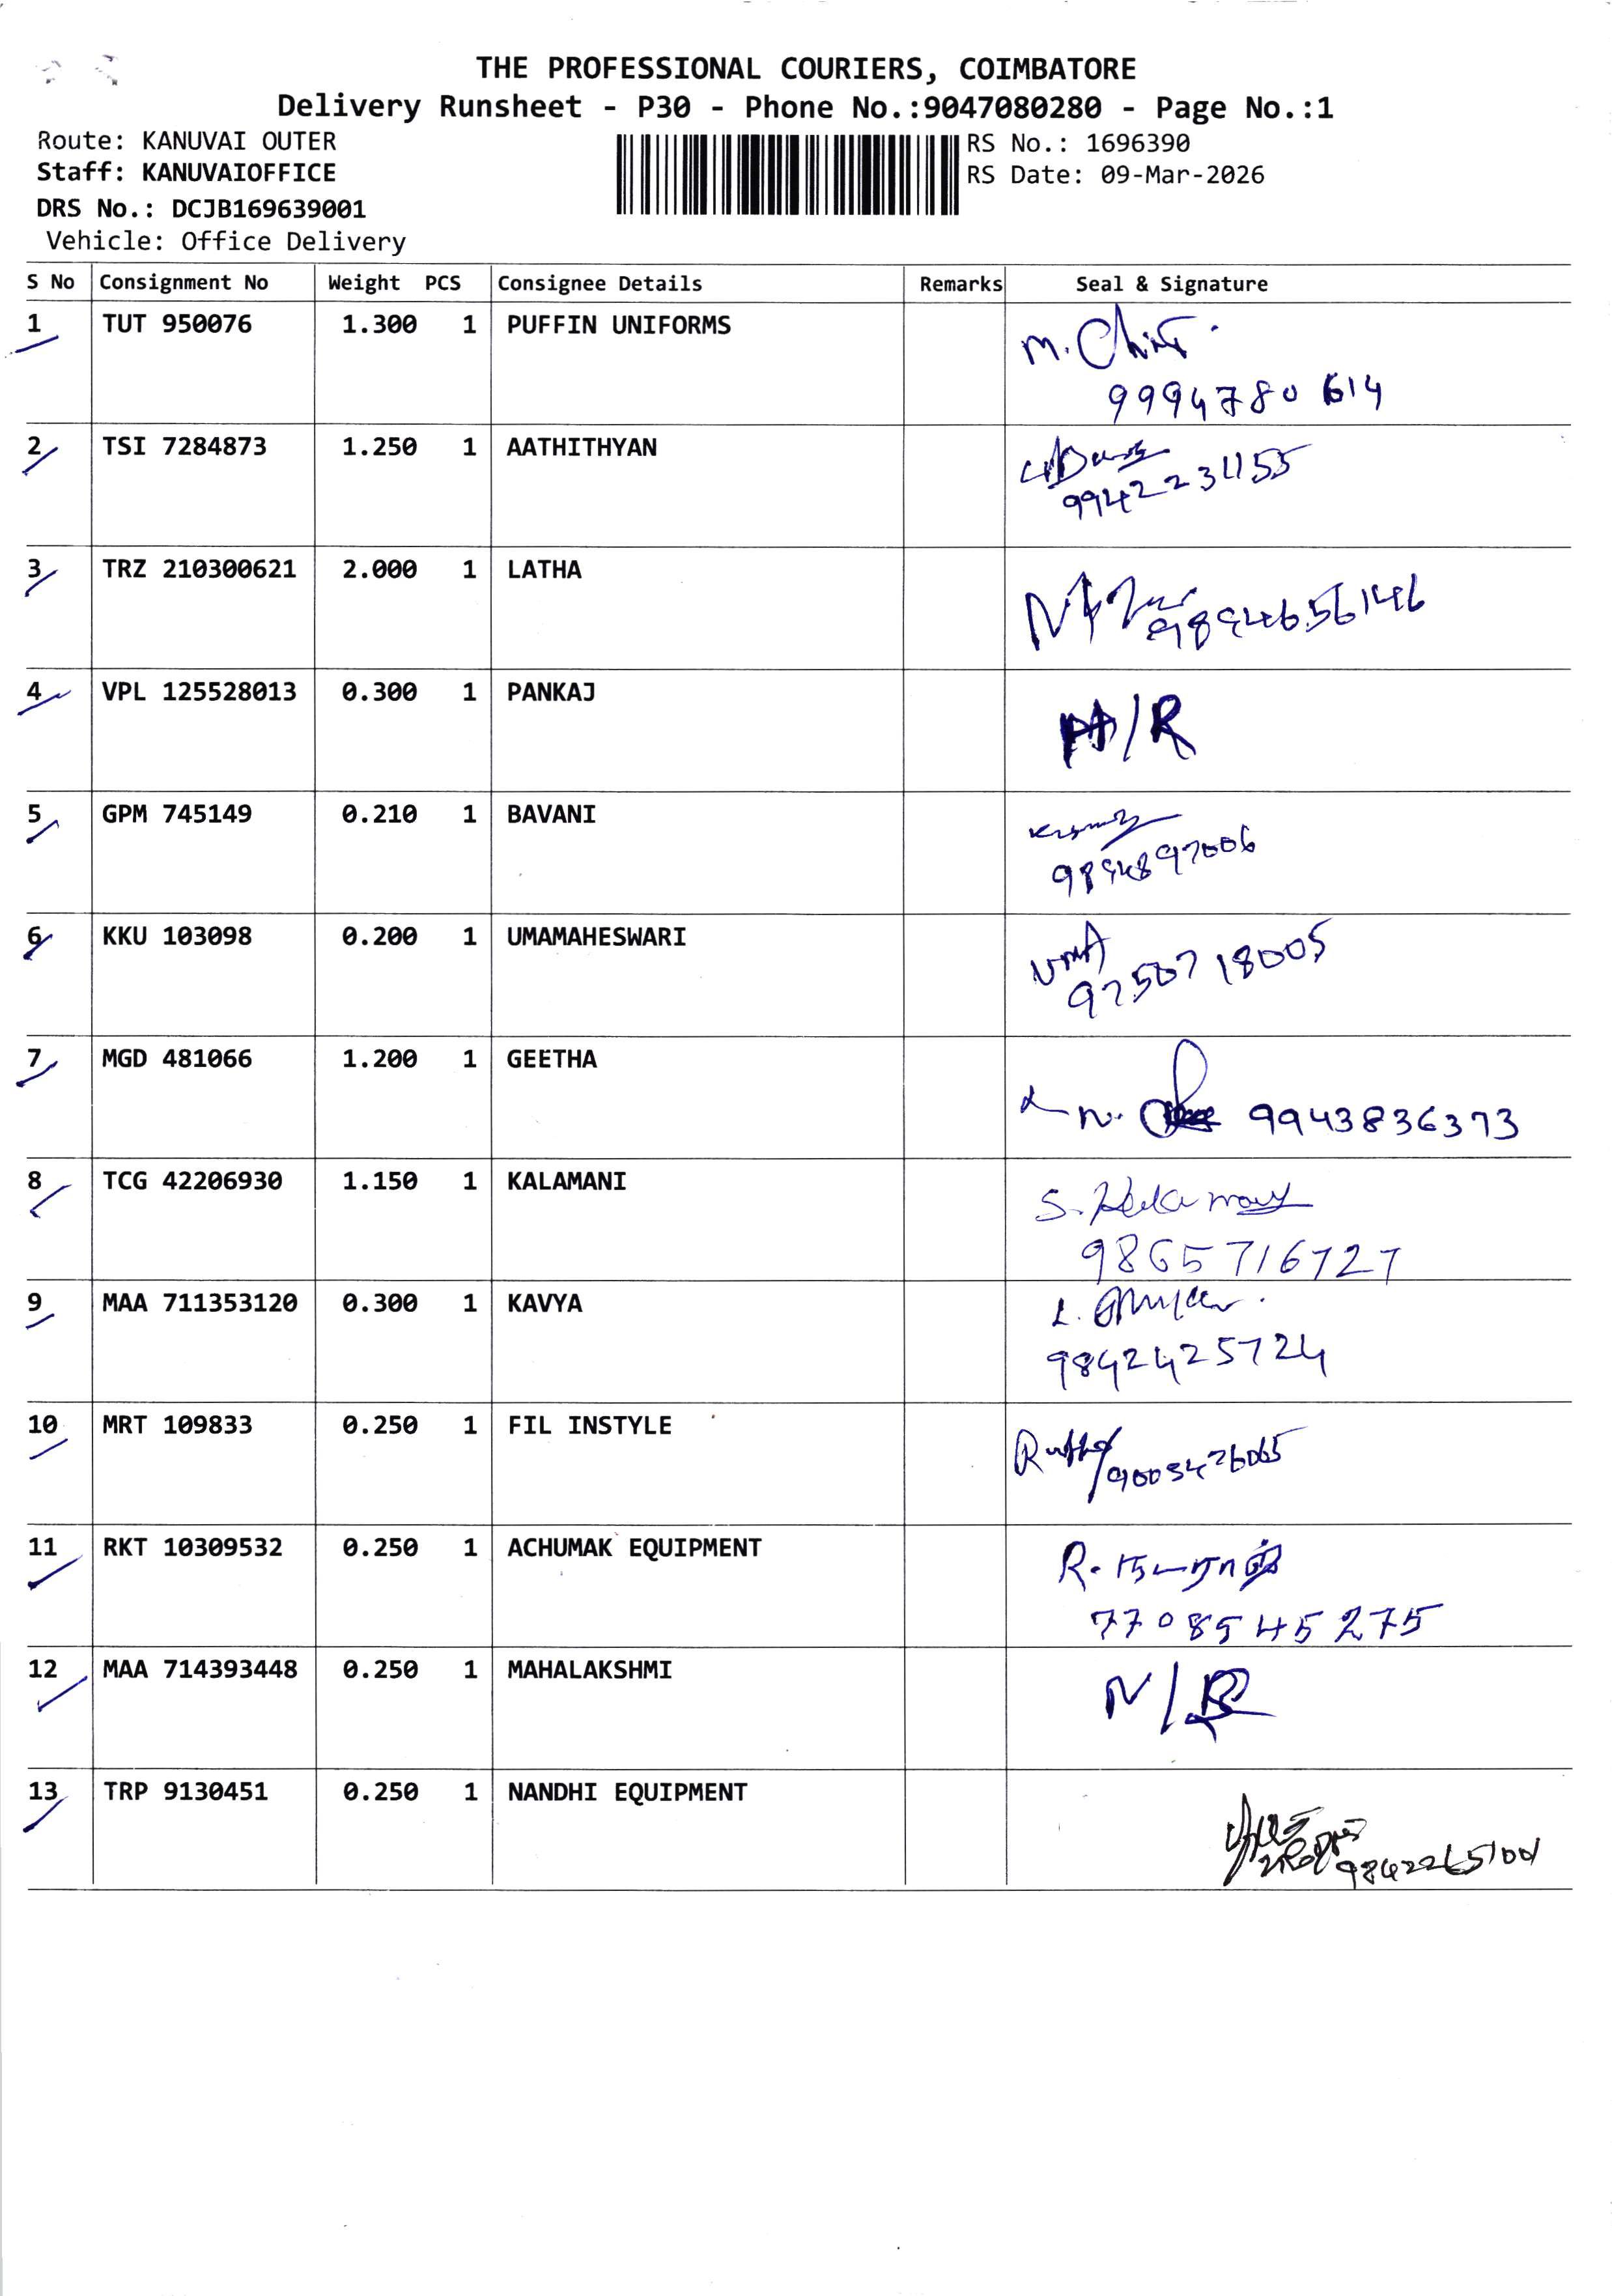 THE PROFESSIONAL COURIERS, COIMBATORE
Delivery Runsheet - P30 - Phone No.:9047080280 - Page No.:1
Route: KANUVAI OUTER
Staff: KANUVAIOFFICE
DRS No.: DCJB169639001
Vehicle: Office Delivery
RS No.: 1696390
RS Date: 09-Mar-2026
S No Consignment No Weight PCS Consignee Details Remarks Seal & Signature
1 TUT 950076 1.300 1 PUFFIN UNIFORMS M.
9994780614
2 TSI 7284873 1.250 1 AATHITHYAN
9942231155
3 TRZ 210300621 2.000 1 LATHA
9894656146
4 VPL 125528013 0.300 1 PANKAJ /R
5 GPM 745149 0.210 1 BAVANI
9894897006
6 KKU 103098 0.200 1 UMAMAHESWARI UMA
9750718005
7 MGD 481066 1.200 1 GEETHA
9943836373
8 TCG 42206930 1.150 1 KALAMANI S. Kalamany
9865716727
9 MAA 711353120 0.300 1 KAVYA
9842425724
10 MRT 109833 0.250 1 FIL INSTYLE
9003426065
11 RKT 10309532 0.250 1 ACHUMAK EQUIPMENT R. நடராஜ்
7708545275
12 MAA 714393448 0.250 1 MAHALAKSHMI N/R
13 TRP 9130451 0.250 1 NANDHI EQUIPMENT
9842265100